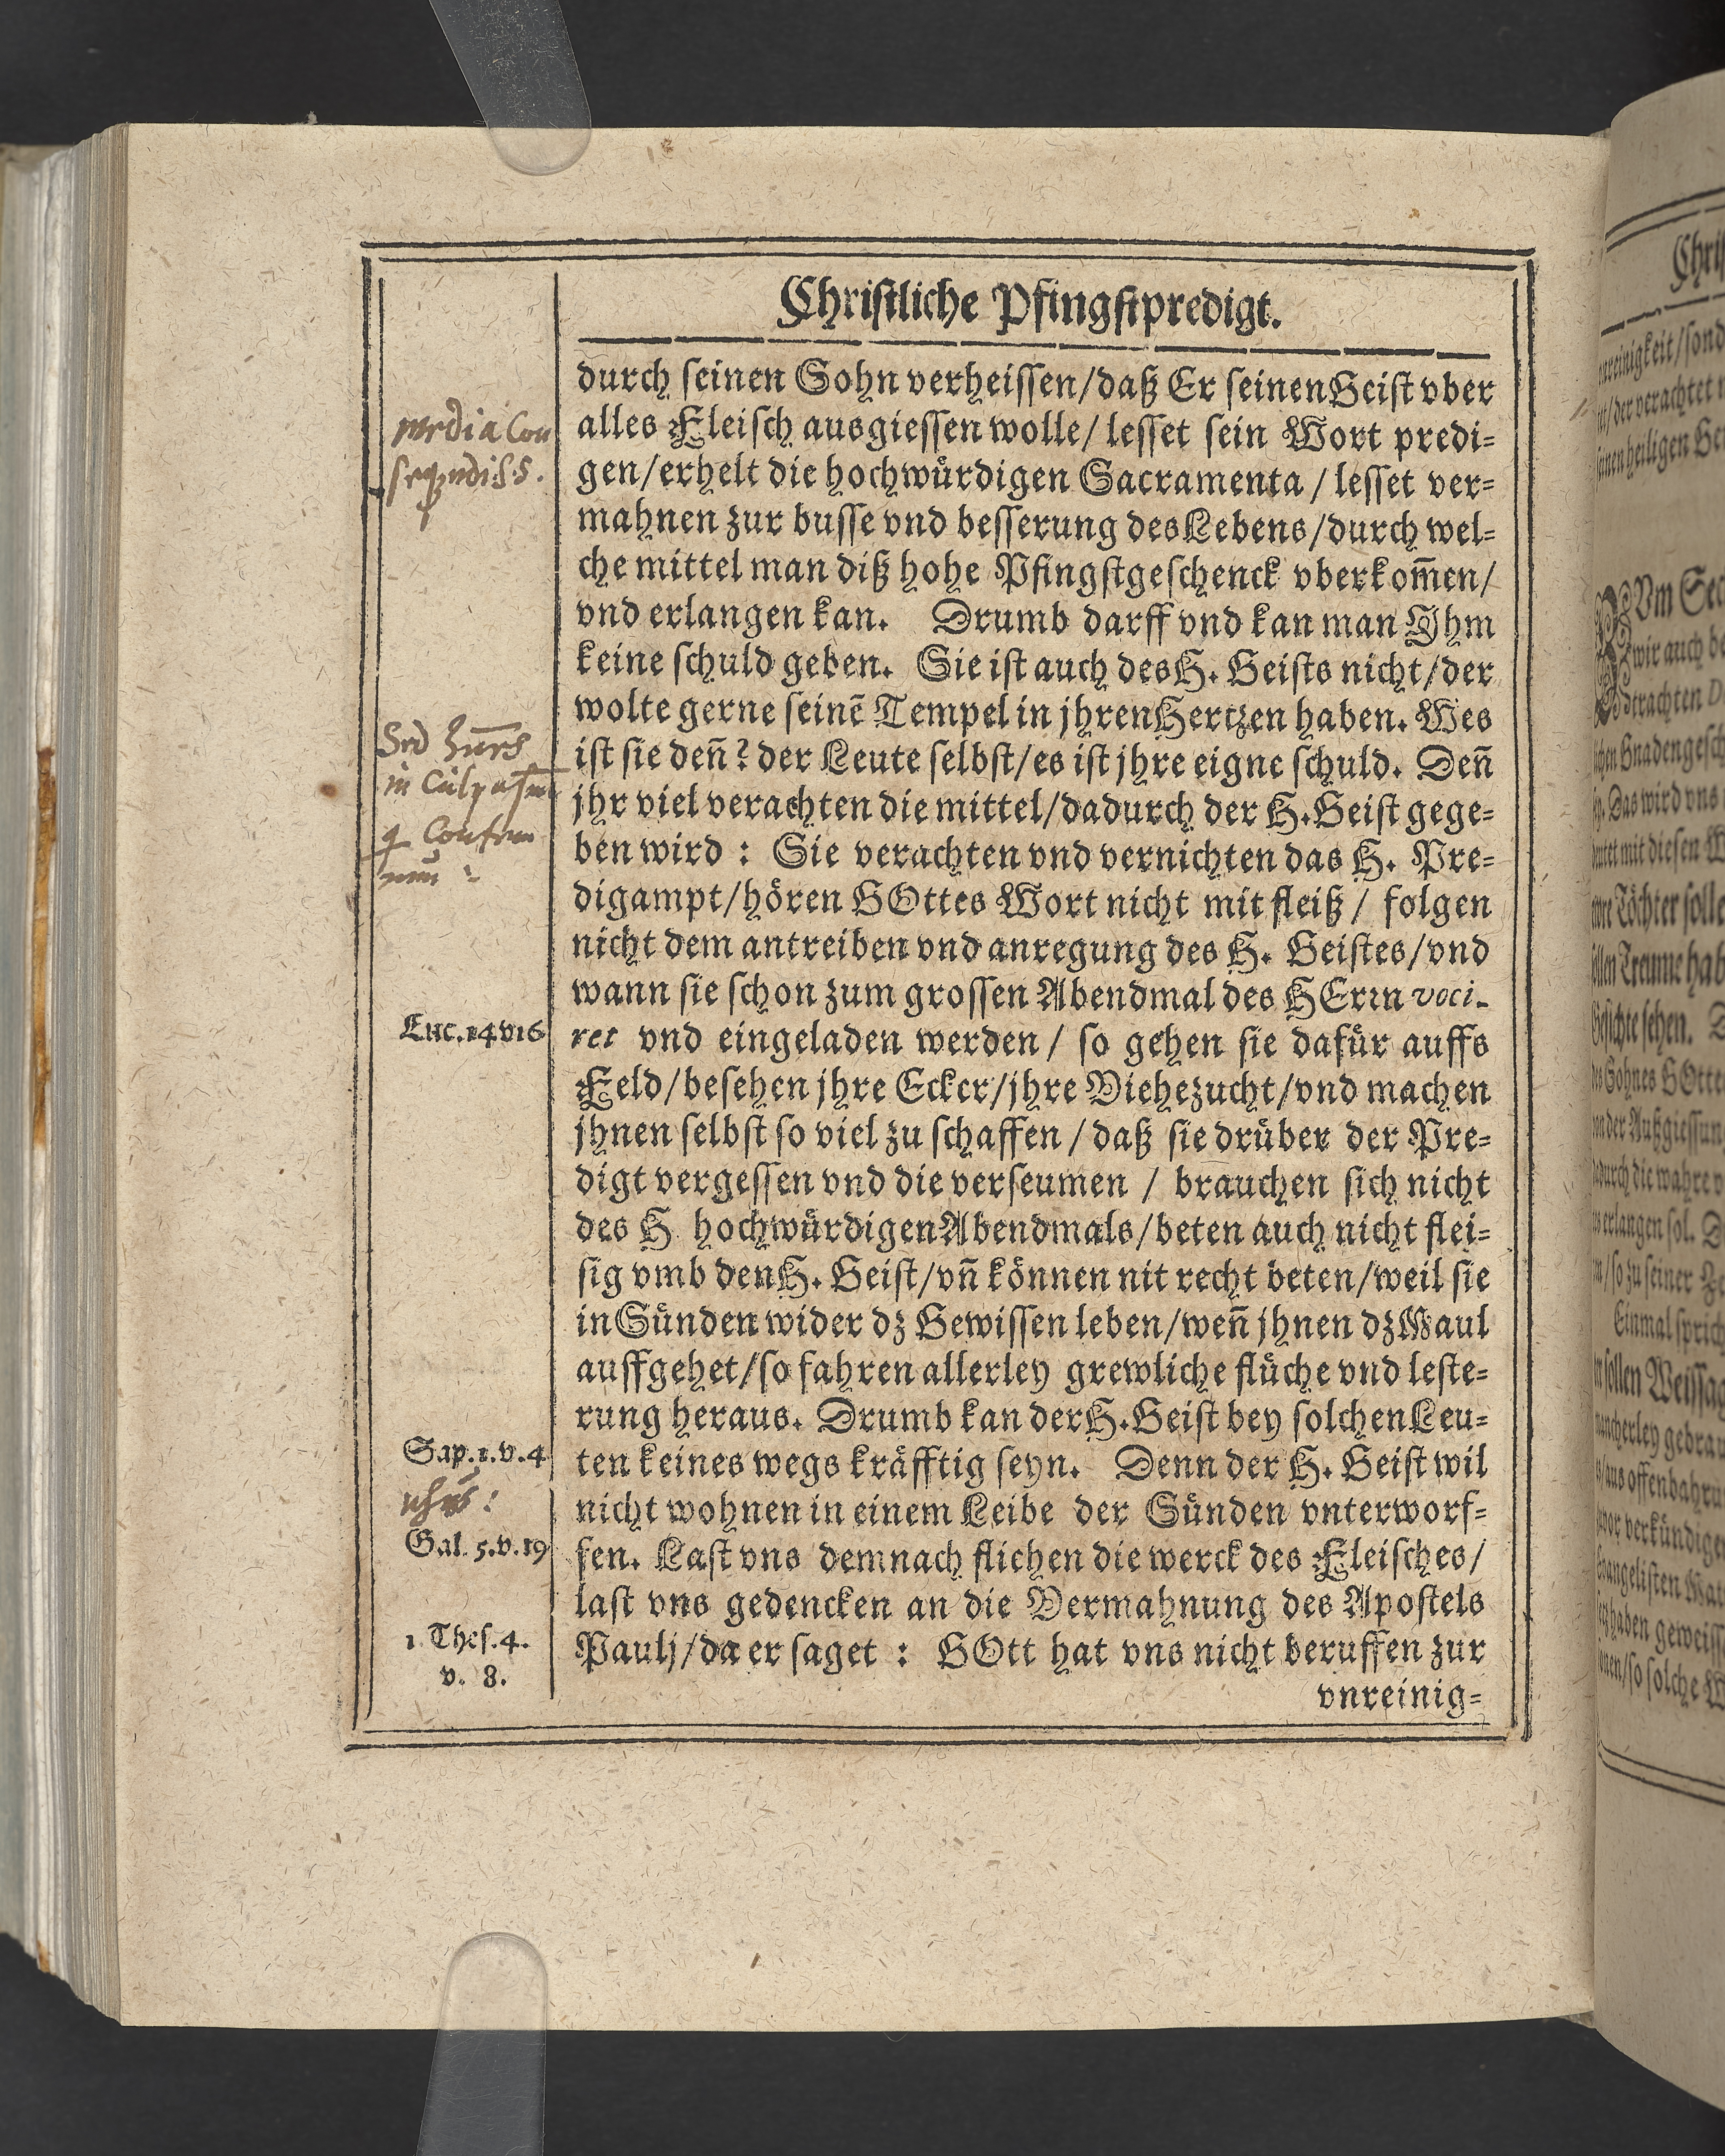 Christliche Pfingstpredigt.
durch seinen Sohn verheissen/daß Er seinen Geist vber
alles Fleisch ausgiessen wolle/ lesset sein Wort predi-
gen/erhelt die hochwürdigen Sacramenta / lesset ver-
mahnen zur busse vnd besserung des Lebens/durch wel-
che mittel man diß hohe Pfingstgeschenck vberkom̃en/
vnd erlangen kan. Drumb darff vnd kan man Ihm
keine schuld geben. Sie ist auch des H. Geists nicht/der
wolte gerne seinẽ Tempel in jhren Hertzen haben. Wes
ist sie deñ? der Leute selbst/es ist jhre eigne schuld. Deñ
jhr viel verachten die mittel/dadurch der H. Geist gege-
ben wird : Sie verachten vnd vernichten das H. Pre-
digampt/hören GOttes Wort nicht mit fleiß / folgen
nicht dem antreiben vnd anregung des H. Geistes/vnd
wann sie schon zum grossen Abendmal des HErrn voci-
ret vnd eingeladen werden / so gehen sie dafür auffs
Feld/besehen jhre Ecker/jhre Viehezucht/vnd machen
jhnen selbst so viel zu schaffen / daß sie drüber der Pre-
digt vergessen vnd die verseumen / brauchen sich nicht
des H hochwürdigen Abendmals/beten auch nicht flei-
sig vmb den H. Geist/vñ können nit recht beten/weil sie
in Sünden wider dz Gewissen leben/weñ jhnen dz Maul
auffgehet/so fahren allerley grewliche flüche vnd leste-
rung heraus. Drumb kan der H. Geist bey solchen Leu-
ten keines wegs kräfftig seyn. Denn der H. Geist wil
nicht wohnen in einem Leibe der Sünden vnterworf-
fen. Last vns demnach fliehen die werck des Fleisches/
last vns gedencken an die Vermahnung des Apostels
Paulj/da er saget : GOtt hat vns nicht beruffen zur
vnreinig-
media Con
Sed
in Culpa
Luc. 14 v 16
Sap. 1. v. 4
Gal. 5. v. 19
1 Thes. 4.
v. 8.